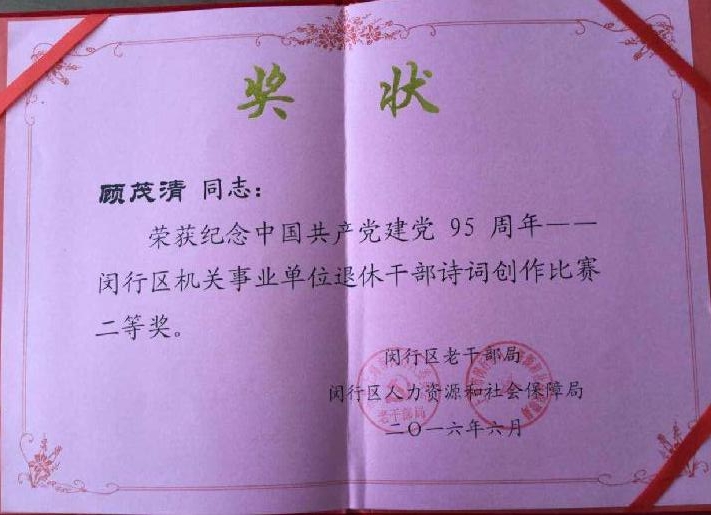 奖 状
顾茂清 同志：
荣获纪念中国共产党建党 95 周年——
闵行区机关事业单位退休干部诗词创作比赛
二等奖。
闵行区老干部局
闵行区人力资源和社会保障局
二〇一六年六月
老干部局